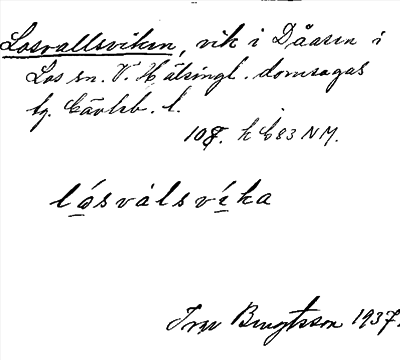 Losvallsviken, vik i Dåasen i
Los sn. V. Hälsingl. domsagas
tg. Gävleb. l.
108. h C 83 NM.
lósválsvíka
Ivar Bengtsson 1937.